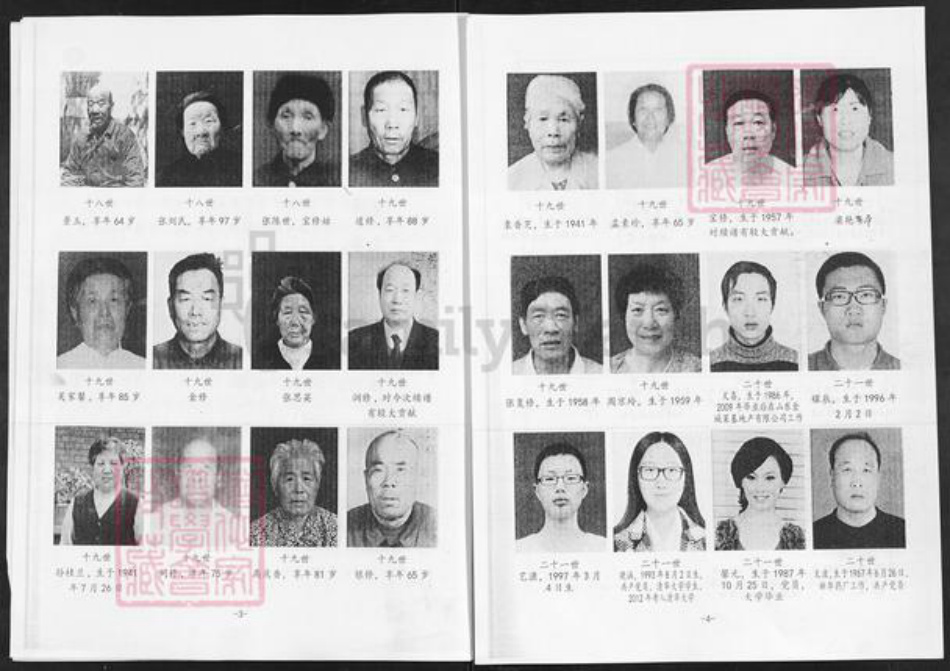 十八世
享年64岁
十八世
张刘氏，享年97岁
十八世
张陈世，宝修姑
十九世
道修，享年88岁
十九世
吴家馨，享年85岁
十九世
金修
十九世
张思英
十九世
润修，对今次续谱
有较大贡献
十九世
孙桂兰，生于1941
年7月26日
十九世
享年75岁
十九世
享年81岁
十九世
银修，享年65岁
-3-
十九世
生于1941年
十九世
孟素珍，享年65岁
十九世
宝修，生于1957年
对续谱有较大贡献。
十九世
十九世
张复修，生于1958年
十九世
周宗玲，生于1959年
二十世
生于1986年，
2009年毕业后在山东金
城某基地产有限公司工作
二十一世
生于1996年
2月2日
二十一世
艺潇，1997年3月
4日生
二十一世
1993年8月2日生，
共产党员，清华大学学生，
2012年考入清华大学
二十世
馨元，生于1987年
10月25日，党员，
大学毕业
二十世
生于1967年6月26日，
工作，共产党员
-4-